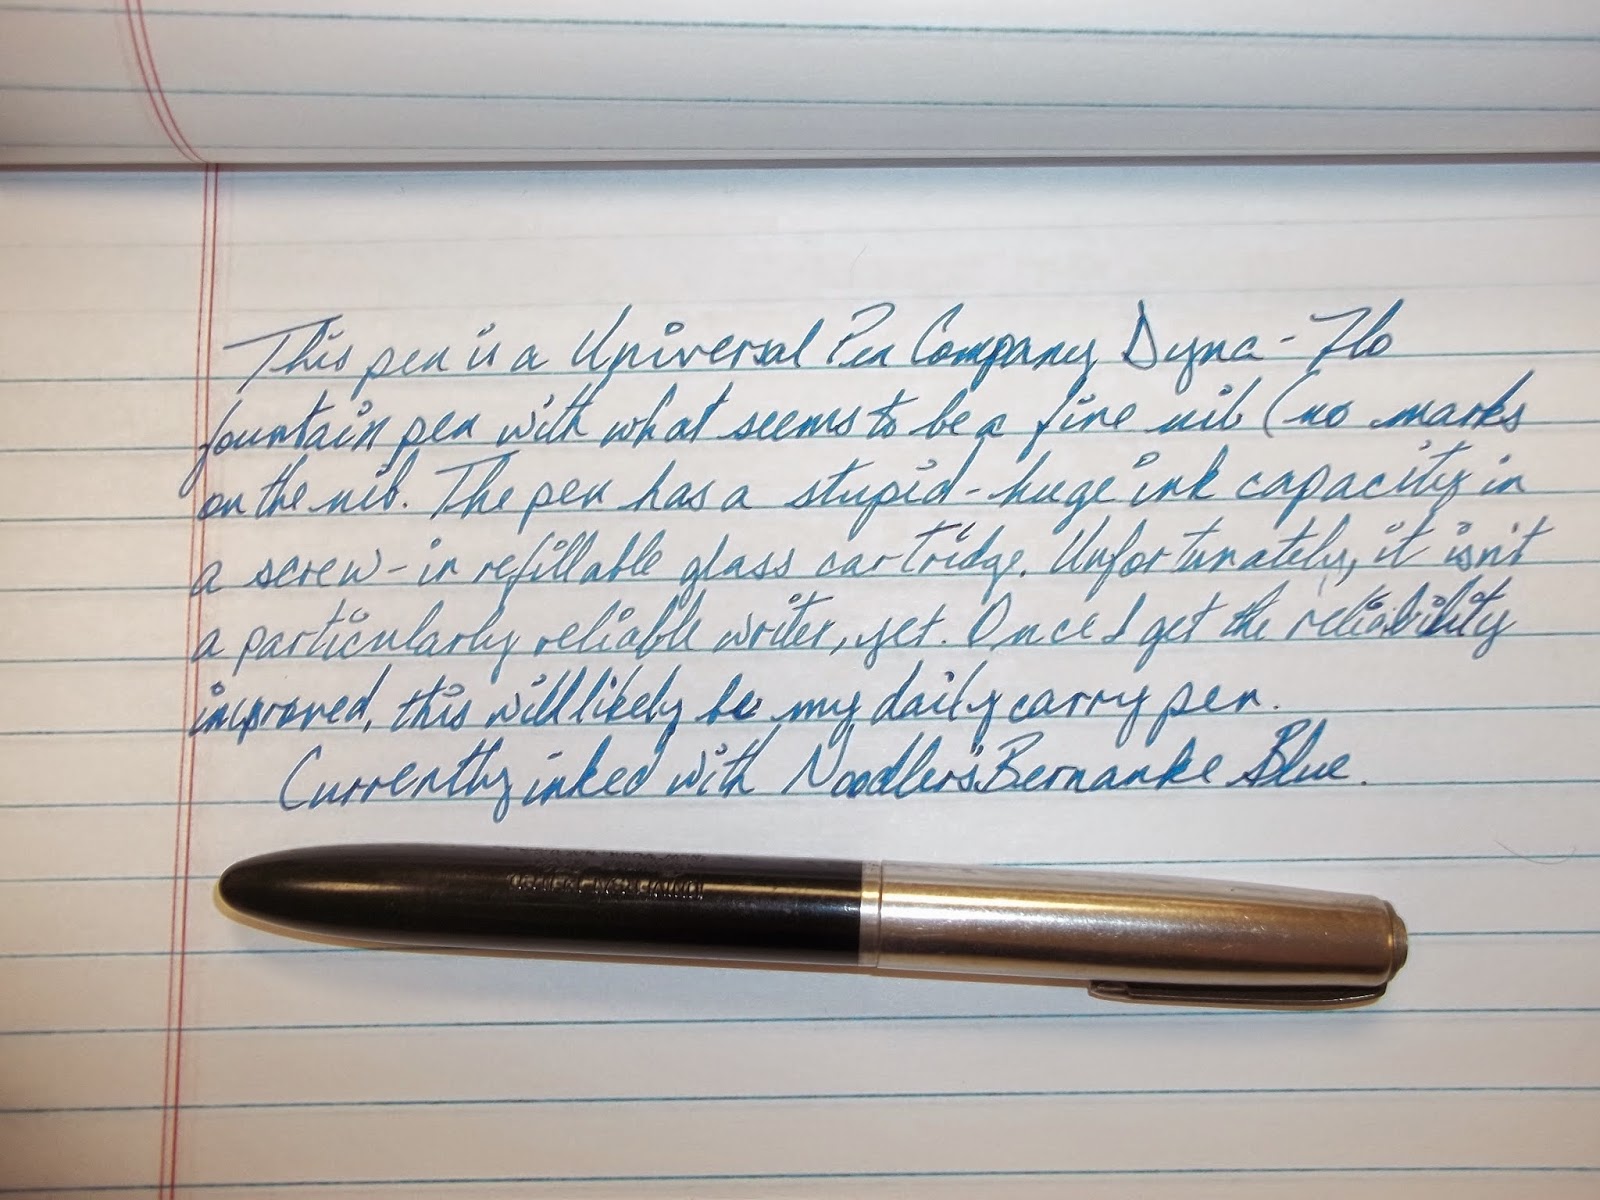 This pen is a Universal Pen Company Dyna-Flo
fountain pen with what seems to be a fine nib (no marks
on the nib. The pen has a stupid-huge ink capacity in
a screw-in refillable glass cartridge. Unfortunately, it isn't
a particularly reliable writer, yet. Once I get the reliability
improved, this will likely be my daily carry pen.
Currently inked with Noodler's Bernanke Blue.